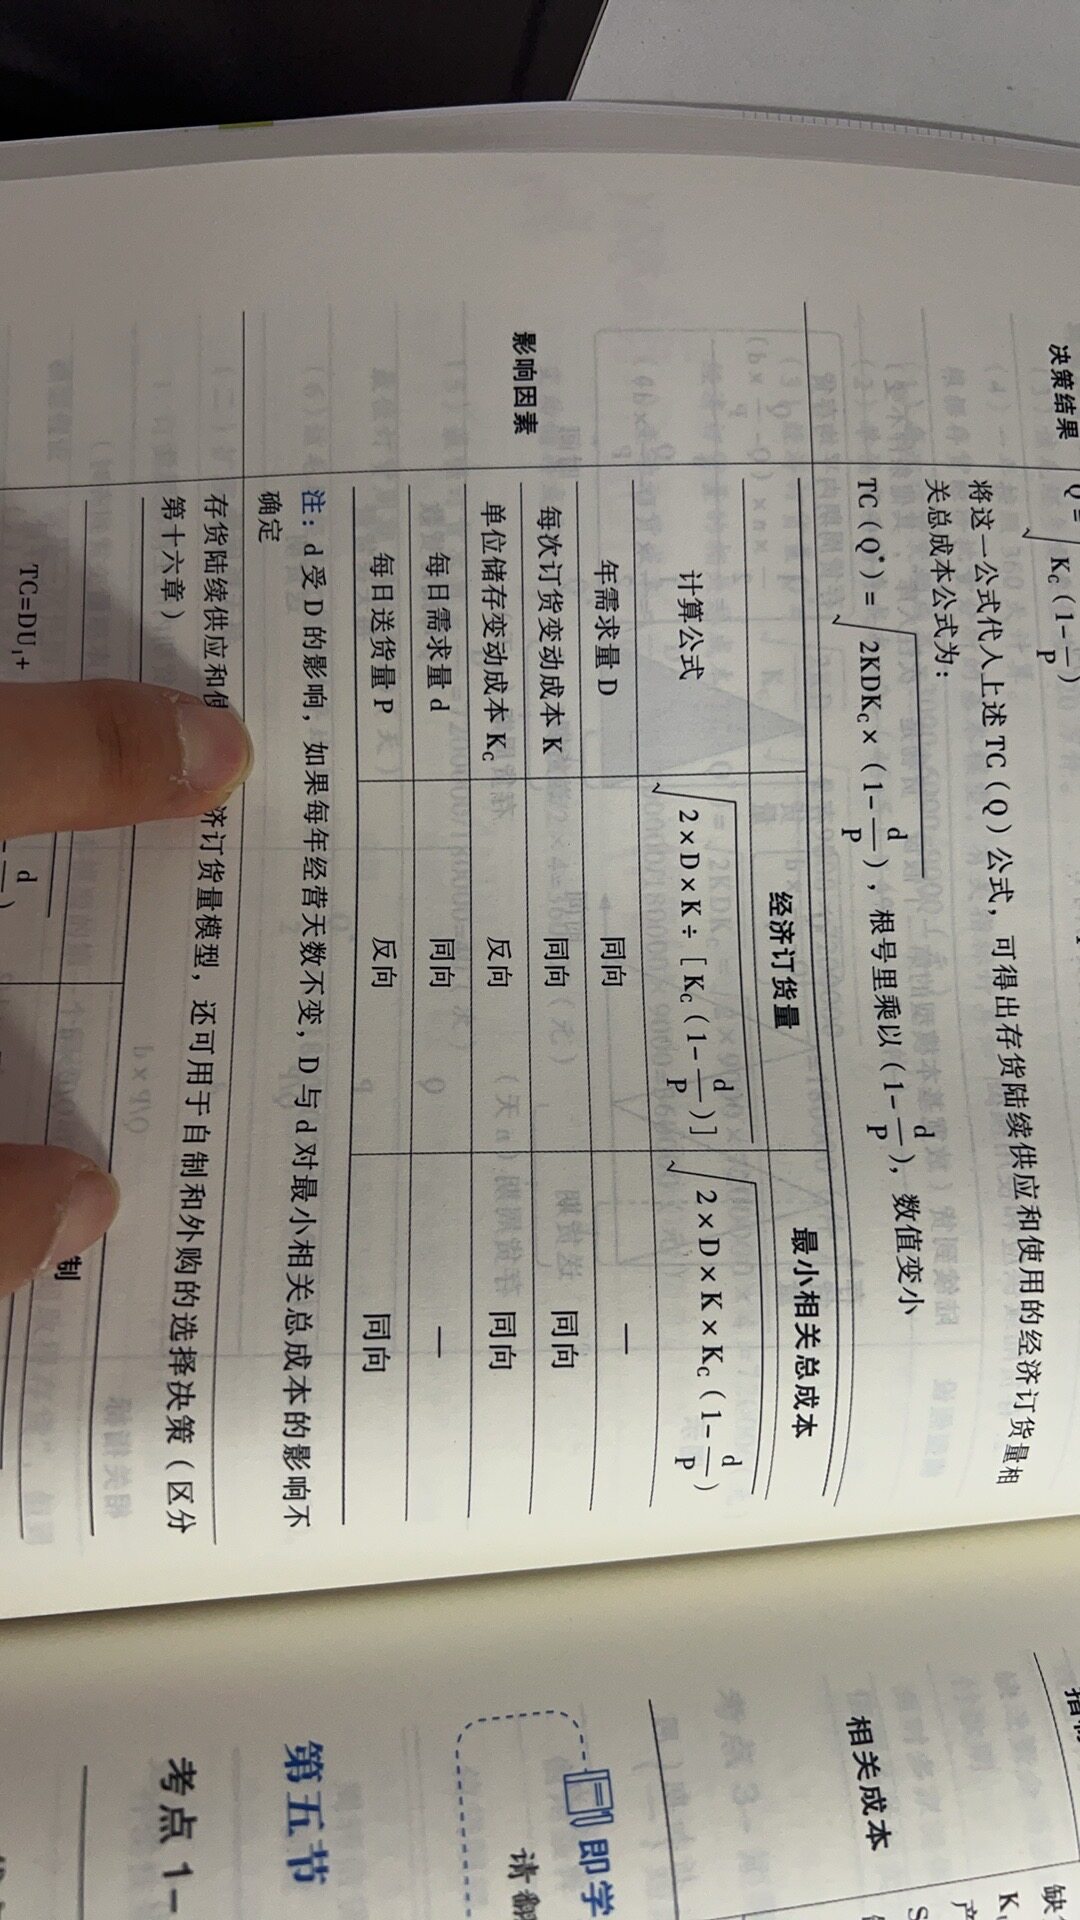 决策结果
Q=√Kc(1-d/P)
将这一公式代入上述TC(Q)公式，可得出存货陆续供应和使用的经济订货量相
关总成本公式为：
TC(Q*)=√2KDKc×(1-d/P)，根号里乘以(1-d/P)，数值变小
影响因素
经济订货量 最小相关总成本
计算公式 √2×D×K÷[Kc(1-d/P)] √2×D×K×Kc(1-d/P)
年需求量D 同向 —
每次订货变动成本K 同向 同向
单位储存变动成本Kc 反向 同向
每日需求量d 同向 —
每日送货量P 反向 同向
注：d受D的影响，如果每年经营天数不变，D与d对最小相关总成本的影响不
确定
存货陆续供应和 济订货量模型，还可用于自制和外购的选择决策（区分
第十六章）
制
TC=DU₁+
d
相关成本
即学
请翻
第五节
考点1-